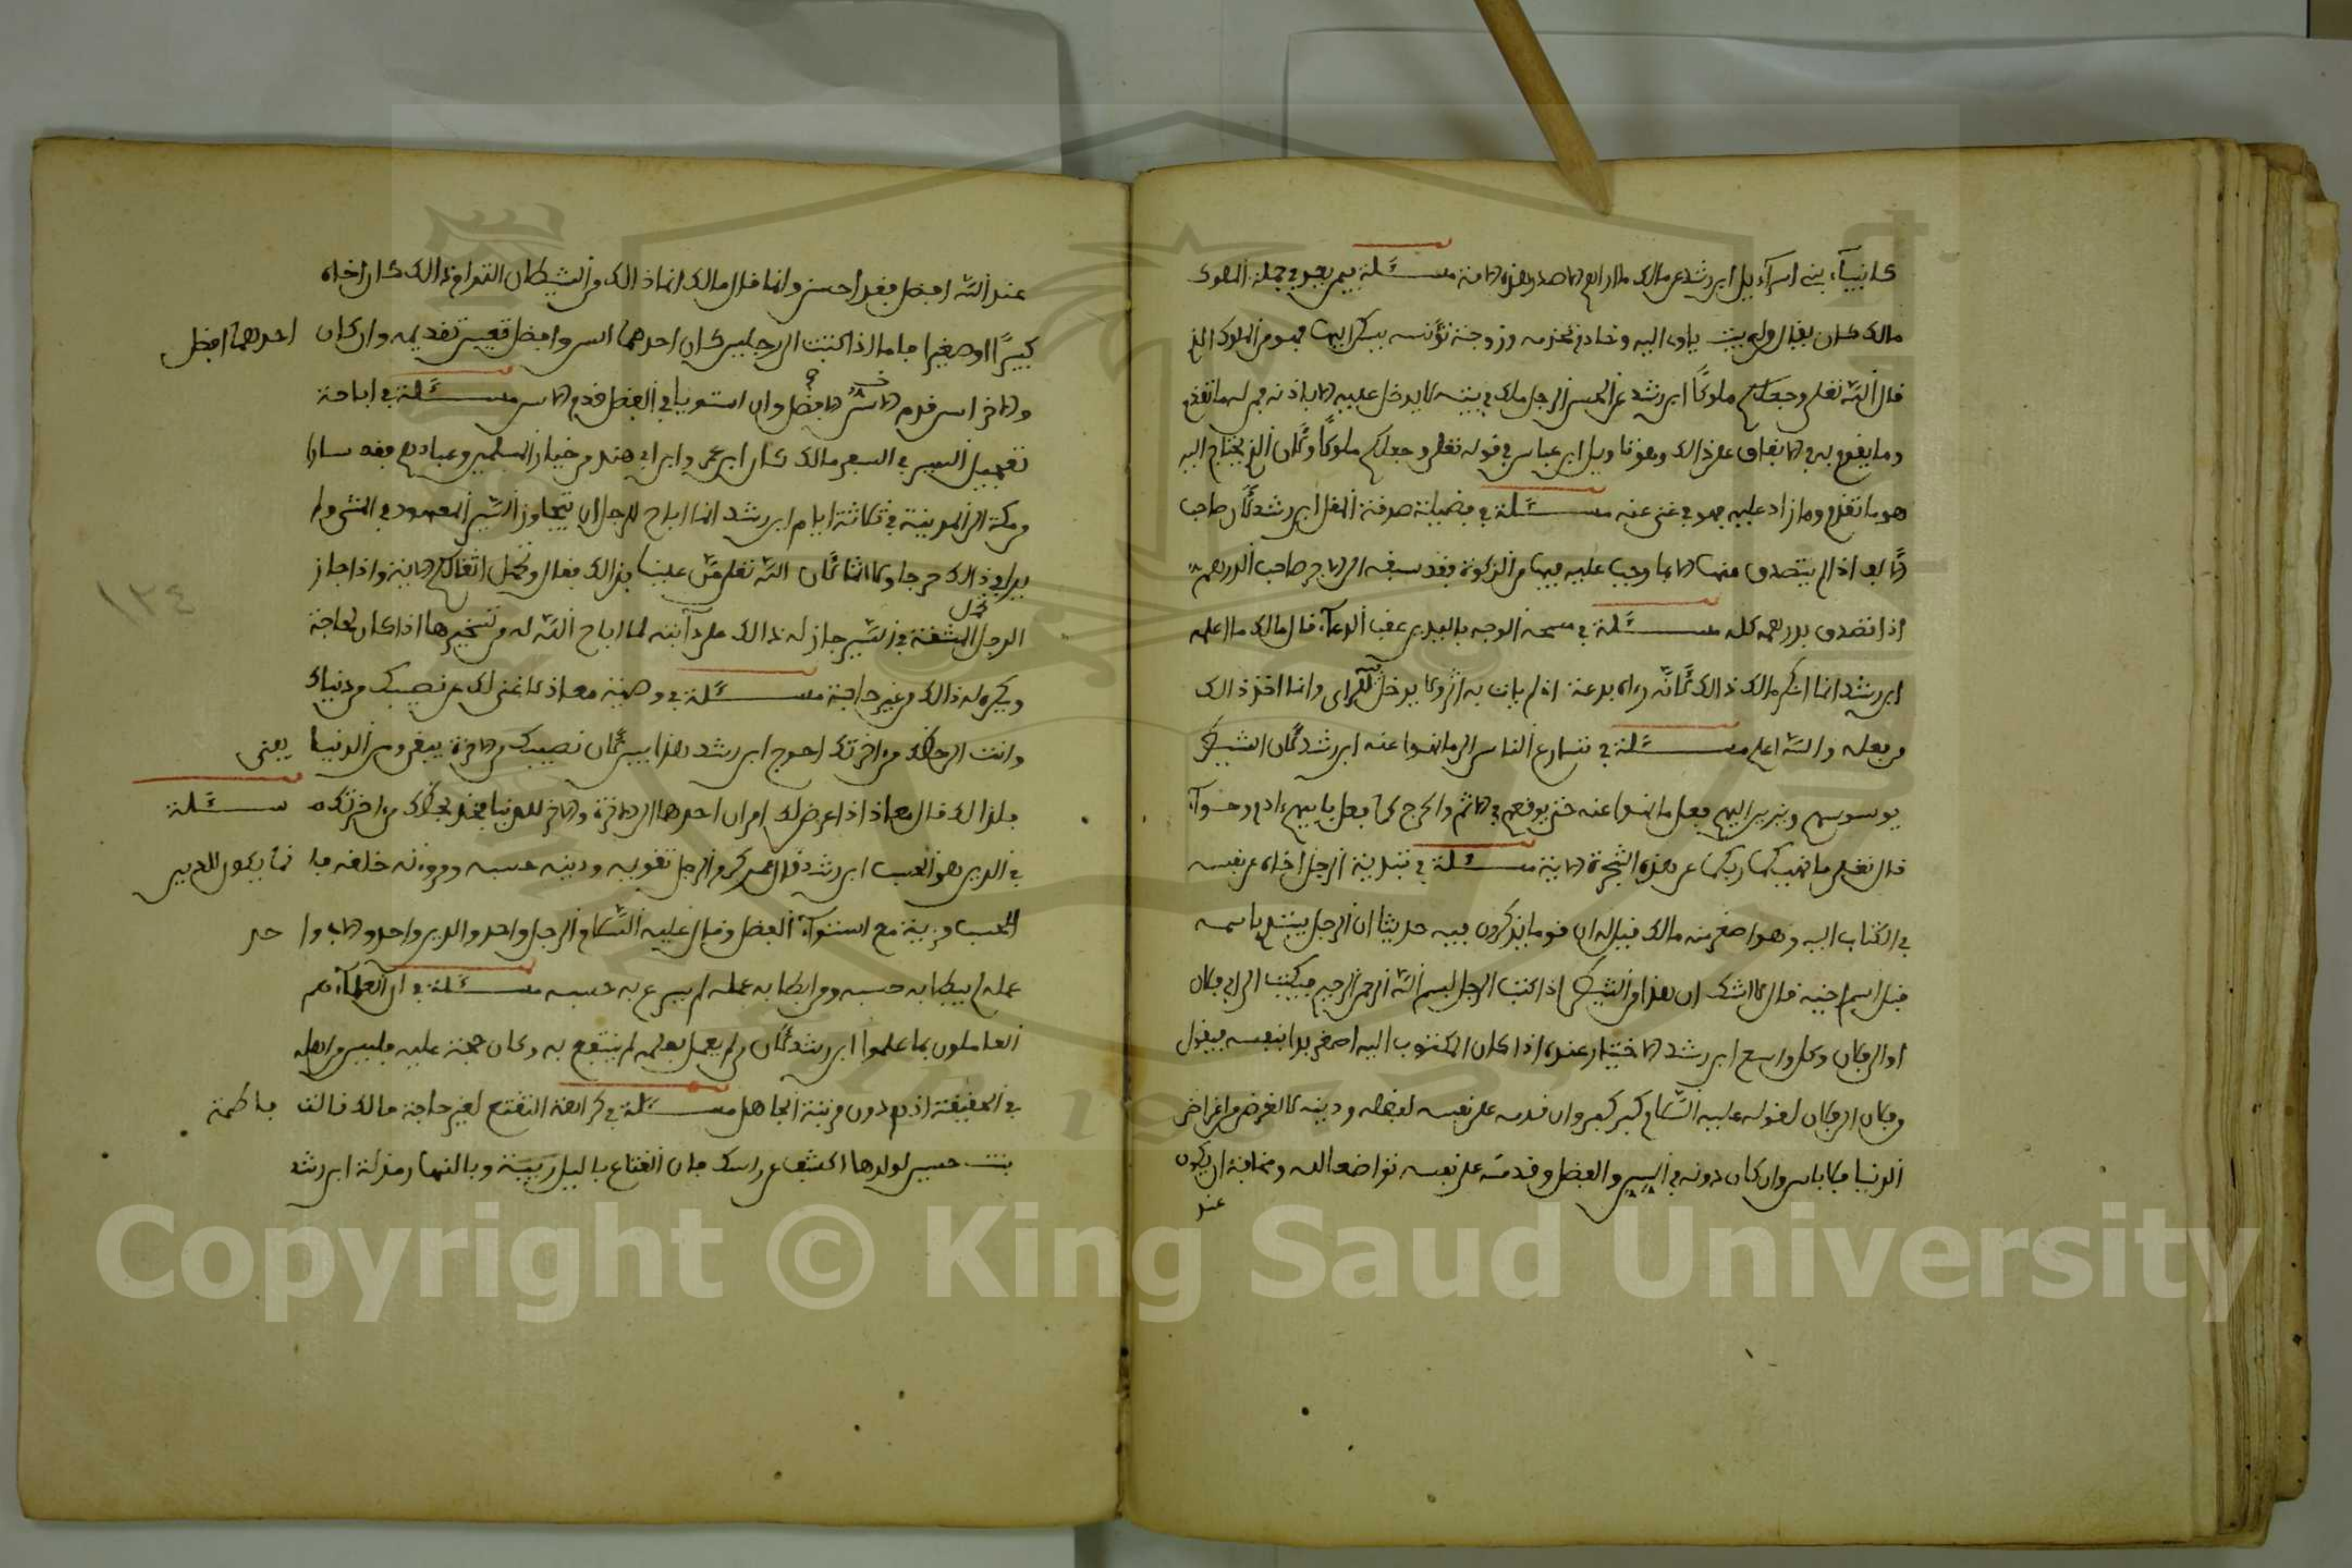 كانبياء بني اسراءيل ابن رشد عن مالك ما ارا مع الاصدر هذه الامة مسئلة فيمن يعد في جملة الملوك
مالك كان يقال من له بيت ياوى اليه وخادم تخدمه وزوجة تؤنسه يسكن اليها فهو من الملوك الذ
قال الله تعلى وجعلكم ملوكا ابن رشد عن الحسن الرجل ملك في بيته لا يدخل عليه الا باذنه فمن له ما تقدم
وما يقوم به في الانفاق على ذالك وهو تاويل ابن عباس في قوله تعلى وجعلكم ملوكا وكان الذي يحتاج اليه
هو ما تقدم وما زاد عليه فهو في غنى عنه مسئلة في فضيلة صدقة المقل ابن رشد لان صاحب
الالف اذا لم يتصدق منها الا بما وجب عليه فيها من الزكوة فقد سبقه الى الاجر صاحب الدرهم
اذا تصدق بدرهمه كله مسئلة في مسح الوجه باليدين عقب الدعاء قال مالك ما اعلمه
ابن رشد انما انكر مالك ذالك لانه رءاه بدعة اذ لم يات به اثر ولا يدخل فيه الراى وانما اخذ ذالك
من فعله والله اعلم مسئلة في تسارع الناس الى ما نهوا عنه ابن رشد لان الشيطن
يوسوسهم ويزين اليهم فعل ما نهوا عنه حتى يوقعهم في الاثم والحرج كما فعل بابيهم ءادم وحواء
قال تعلى ما نهيكما ربكما عن هذه الشجرة الاية مسئلة في تبدية الرجل اخاه عن نفسه
في الكتاب اليه وهو اصغر منه مالك قيل له ان قوما يذكرون فيه حديثا ان الرجل يبتدئ باسمه
قبل اسم اخيه قال لا اشك ان هذا من الشيطن اذا كتب الرجل بسم الله الرحمن الرحيم فيكتب الى ابي فلان
او الى فلان وكل واسع ابن رشد الاختيار عنده اذا كان المكتوب اليه اصغر بدا بنفسه فيقول
من فلان الى فلان لقوله عليه السلام كبر كبر وان قدمه على نفسه لفضله ودينه لا لغرض من اغراض
الدنيا فلا باس وان كان دونه في السن والفضل وقدمه على نفسه تواضعا لله ومخافة ان يكون
عند
عند الله افضل فقد احسن وانما قال مالك انما ذالك من الشيطان التدافع ذالك كان اخاه
كبيرا او صغيرا فاما اذا كتبت الى رجلين كان احدهما اسن وافضل فحسن تقديمه وان كان احدهما افضل
والاخر اسن قدم الاسن الافضل وان استويا في الفضل قدم الاسن مسئلة في اباحة
تعجيل السير في السفر مالك كان ابن عمر وابن ابي هند من خيار المسلمين وعبادهم فقد سارا
من مكة الى المدينة في ثلاثة ايام ابن رشد انما اباح للرجل ان يتجاوز السير المعهود في المشى ولم
ير في ذالك حرجا ولا اثما لان الله تعلى من علينا بذالك فقال وتحمل اثقالكم الاية واذا جاز
تحمل
الرجل المشقة في السير جاز له ذالك على دابته لما اباح الله له من تسخيرها اذا كان لحاجة
ويكره له ذالك من غير حاجة مسئلة في وصية معاذ لا غنى لك عن نصيبك من دنياك
وانت الى حظك من اخرتك احوج ابن رشد هذا بين لان نصيبك من الاخرة يبقى ومن الدنيا يفنى
فلذالك قال معاذ اذا عرض لك امران احدهما الى الاخرة والاخر للدنيا فخذ بحظك من اخرتك مسئلة
في الدين هو الحسب ابن رشد قال عمر كرم الرجل تقويه ودينه حسبه ومروءته خلقه فلما يكون للدين
الحسب مزية مع استواء الفضل وقال عليه السلام الرجل واحد والدين واحد والاب واحد
عمله لم يبطا به حسبه ومن ابطا به عمله لم يسرع به حسبه مسئلة في ان العلماء هم
العاملون بما علموا ابن رشد لان من لم يعمل بعلمه لم ينتفع به وكان حجة عليه فليس من اهله
في الحقيقة اذ هو دون مرتبة الجاهل مسئلة في كراهة التقنع لغير حاجة مالك قالت فاطمة
بنت حسين لولدها اكشف عن راسك فان القناع بالليل ريبة وبالنهار مذلة ابن رشد
١٢٤
Copyright © King Saud University